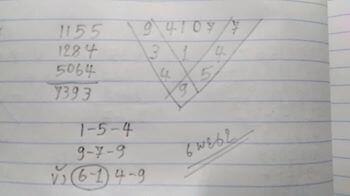 1155
1284
5064
7393
9 4 1 0 7 7
3 1 4
4 5
9
1-5-4
9-7-9
6-1 4-9